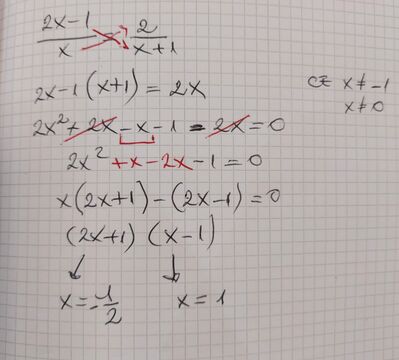 2x-1/x = 2/x+1
2x-1(x+1)=2x
CE x≠-1
x≠0
2x²+2x-x-1-2x=0
2x²+x-2x-1=0
x(2x+1)-(2x-1)=0
(2x+1)(x-1)
x=-1/2 x=1